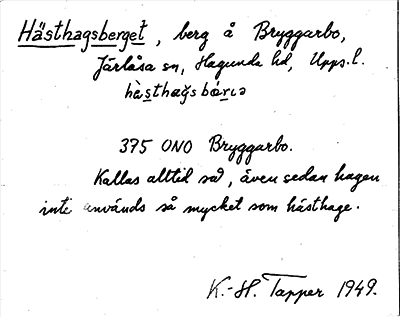 Hästhagsberget, berg å Bryggarbo,
Järlåsa sn, Hagunda hd, Upps. l.
hàsthag̊s bár̲ıə
375 ONO Bryggarbo.
Kallas alltid så, även sedan hagen
inte används så mycket som hästhage.
K.-H. Tapper 1949.